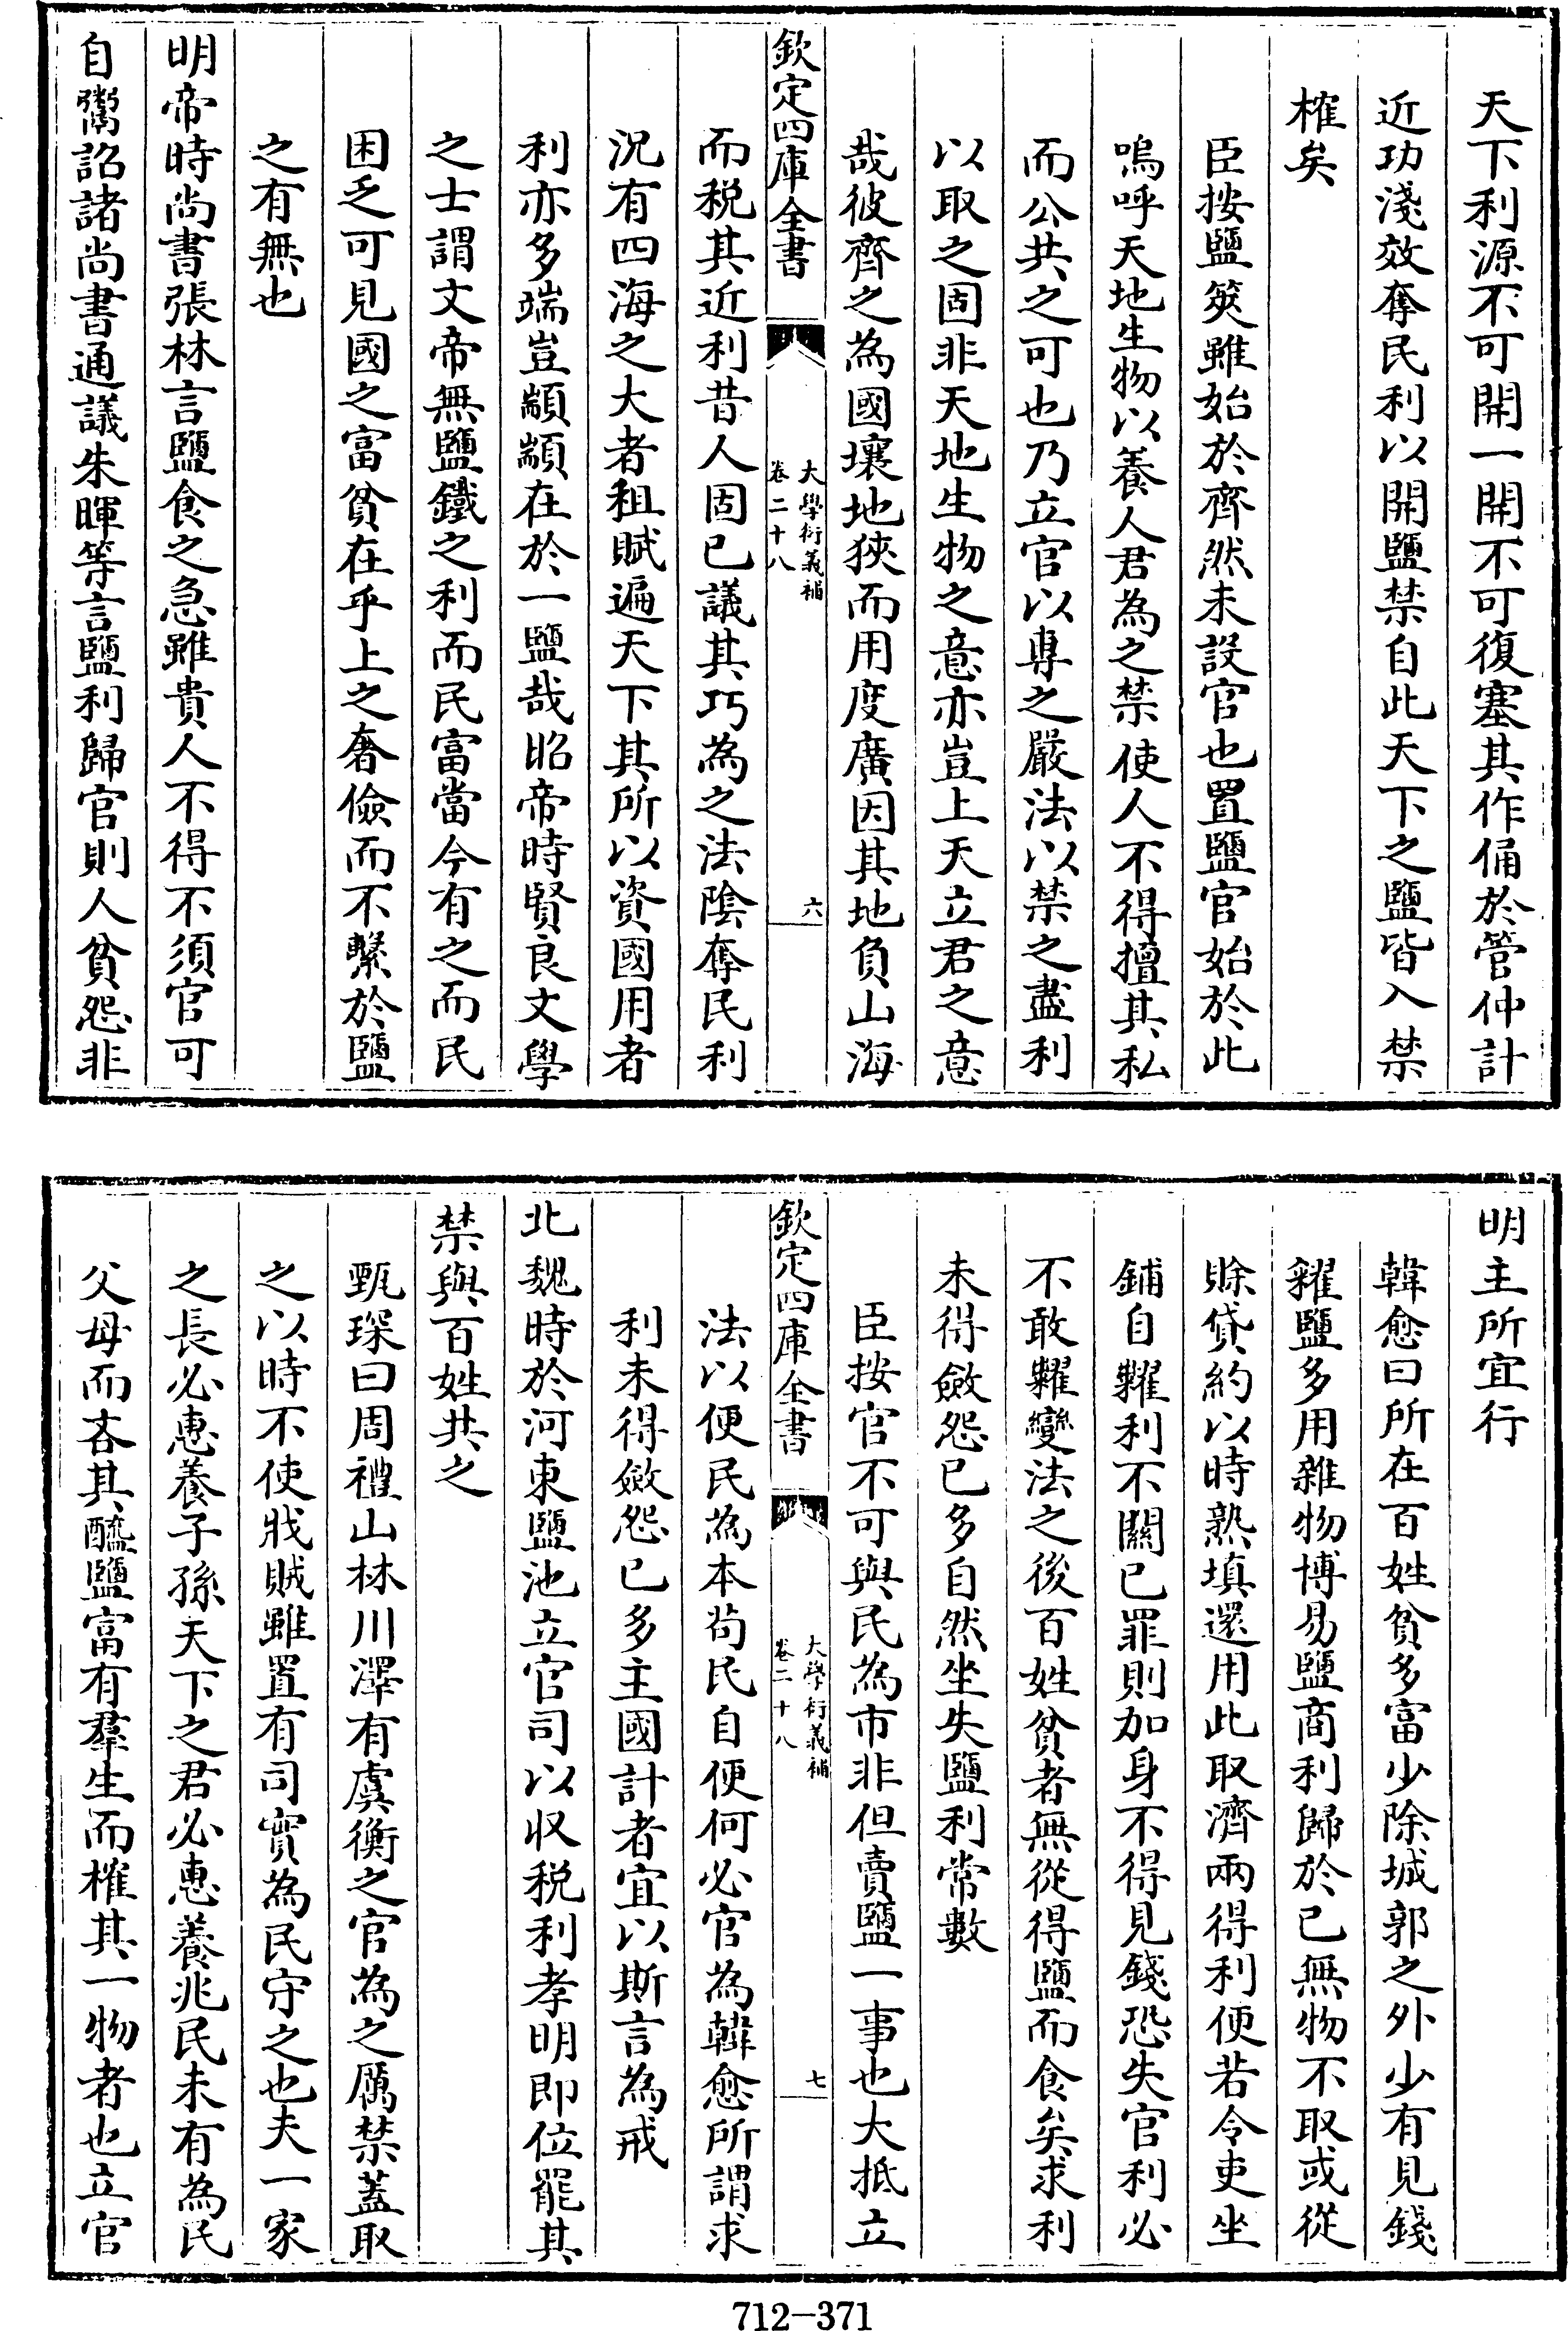 天下利源不可開一開不可復塞其作俑於管仲計
近功淺效奪民利以開鹽禁自此天下之鹽皆入禁
榷矣
臣按鹽筴雖始於齊然未設官也置鹽官始於此
嗚呼天地生物以養人君為之禁使人不得擅其私
而公共之可也乃立官以專之嚴法以禁之盡利
以取之固非天地生物之意亦豈上天立君之意
哉彼齊之為國壤地狹而用度廣因其地負山海
欽定四庫全書
大學衍義補
卷二十八
六
而税其近利昔人固已議其巧為之法陰奪民利
況有四海之大者租賦遍天下其所以資國用者
利亦多端豈顓顓在於一鹽哉昭帝時賢良文學
之士謂文帝無鹽鐵之利而民富當今有之而民
困乏可見國之富貧在乎上之奢儉而不繫於鹽
之有無也
明帝時尚書張林言鹽食之急雖貴人不得不須官可
自鬻詔諸尚書通議朱暉等言鹽利歸官則人貧怨非
明主所宜行
韓愈曰所在百姓貧多富少除城郭之外少有見錢
糴鹽多用雜物博易鹽商利歸於己無物不取或從
賒貸約以時熟填還用此取濟兩得利便若令吏坐
鋪自糶利不關己罪則加身不得見錢恐失官利必
不敢糶變法之後百姓貧者無從得鹽而食矣求利
未得斂怨已多自然坐失鹽利常數
臣按官不可與民為市非但賣鹽一事也大抵立
欽定四庫全書
大學衍義補
卷二十八
七
法以便民為本茍民自便何必官為韓愈所謂求
利未得斂怨已多主國計者宜以斯言為戒
北魏時於河東鹽池立官司以収税利孝明即位罷其
禁與百姓共之
甄琛曰周禮山林川澤有虞衡之官為之厲禁蓋取
之以時不使戕賊雖置有司實為民守之也夫一家
之長必惠養子孫天下之君必惠養兆民未有為民
父母而吝其醯鹽富有羣生而榷其一物者也立官
712-371